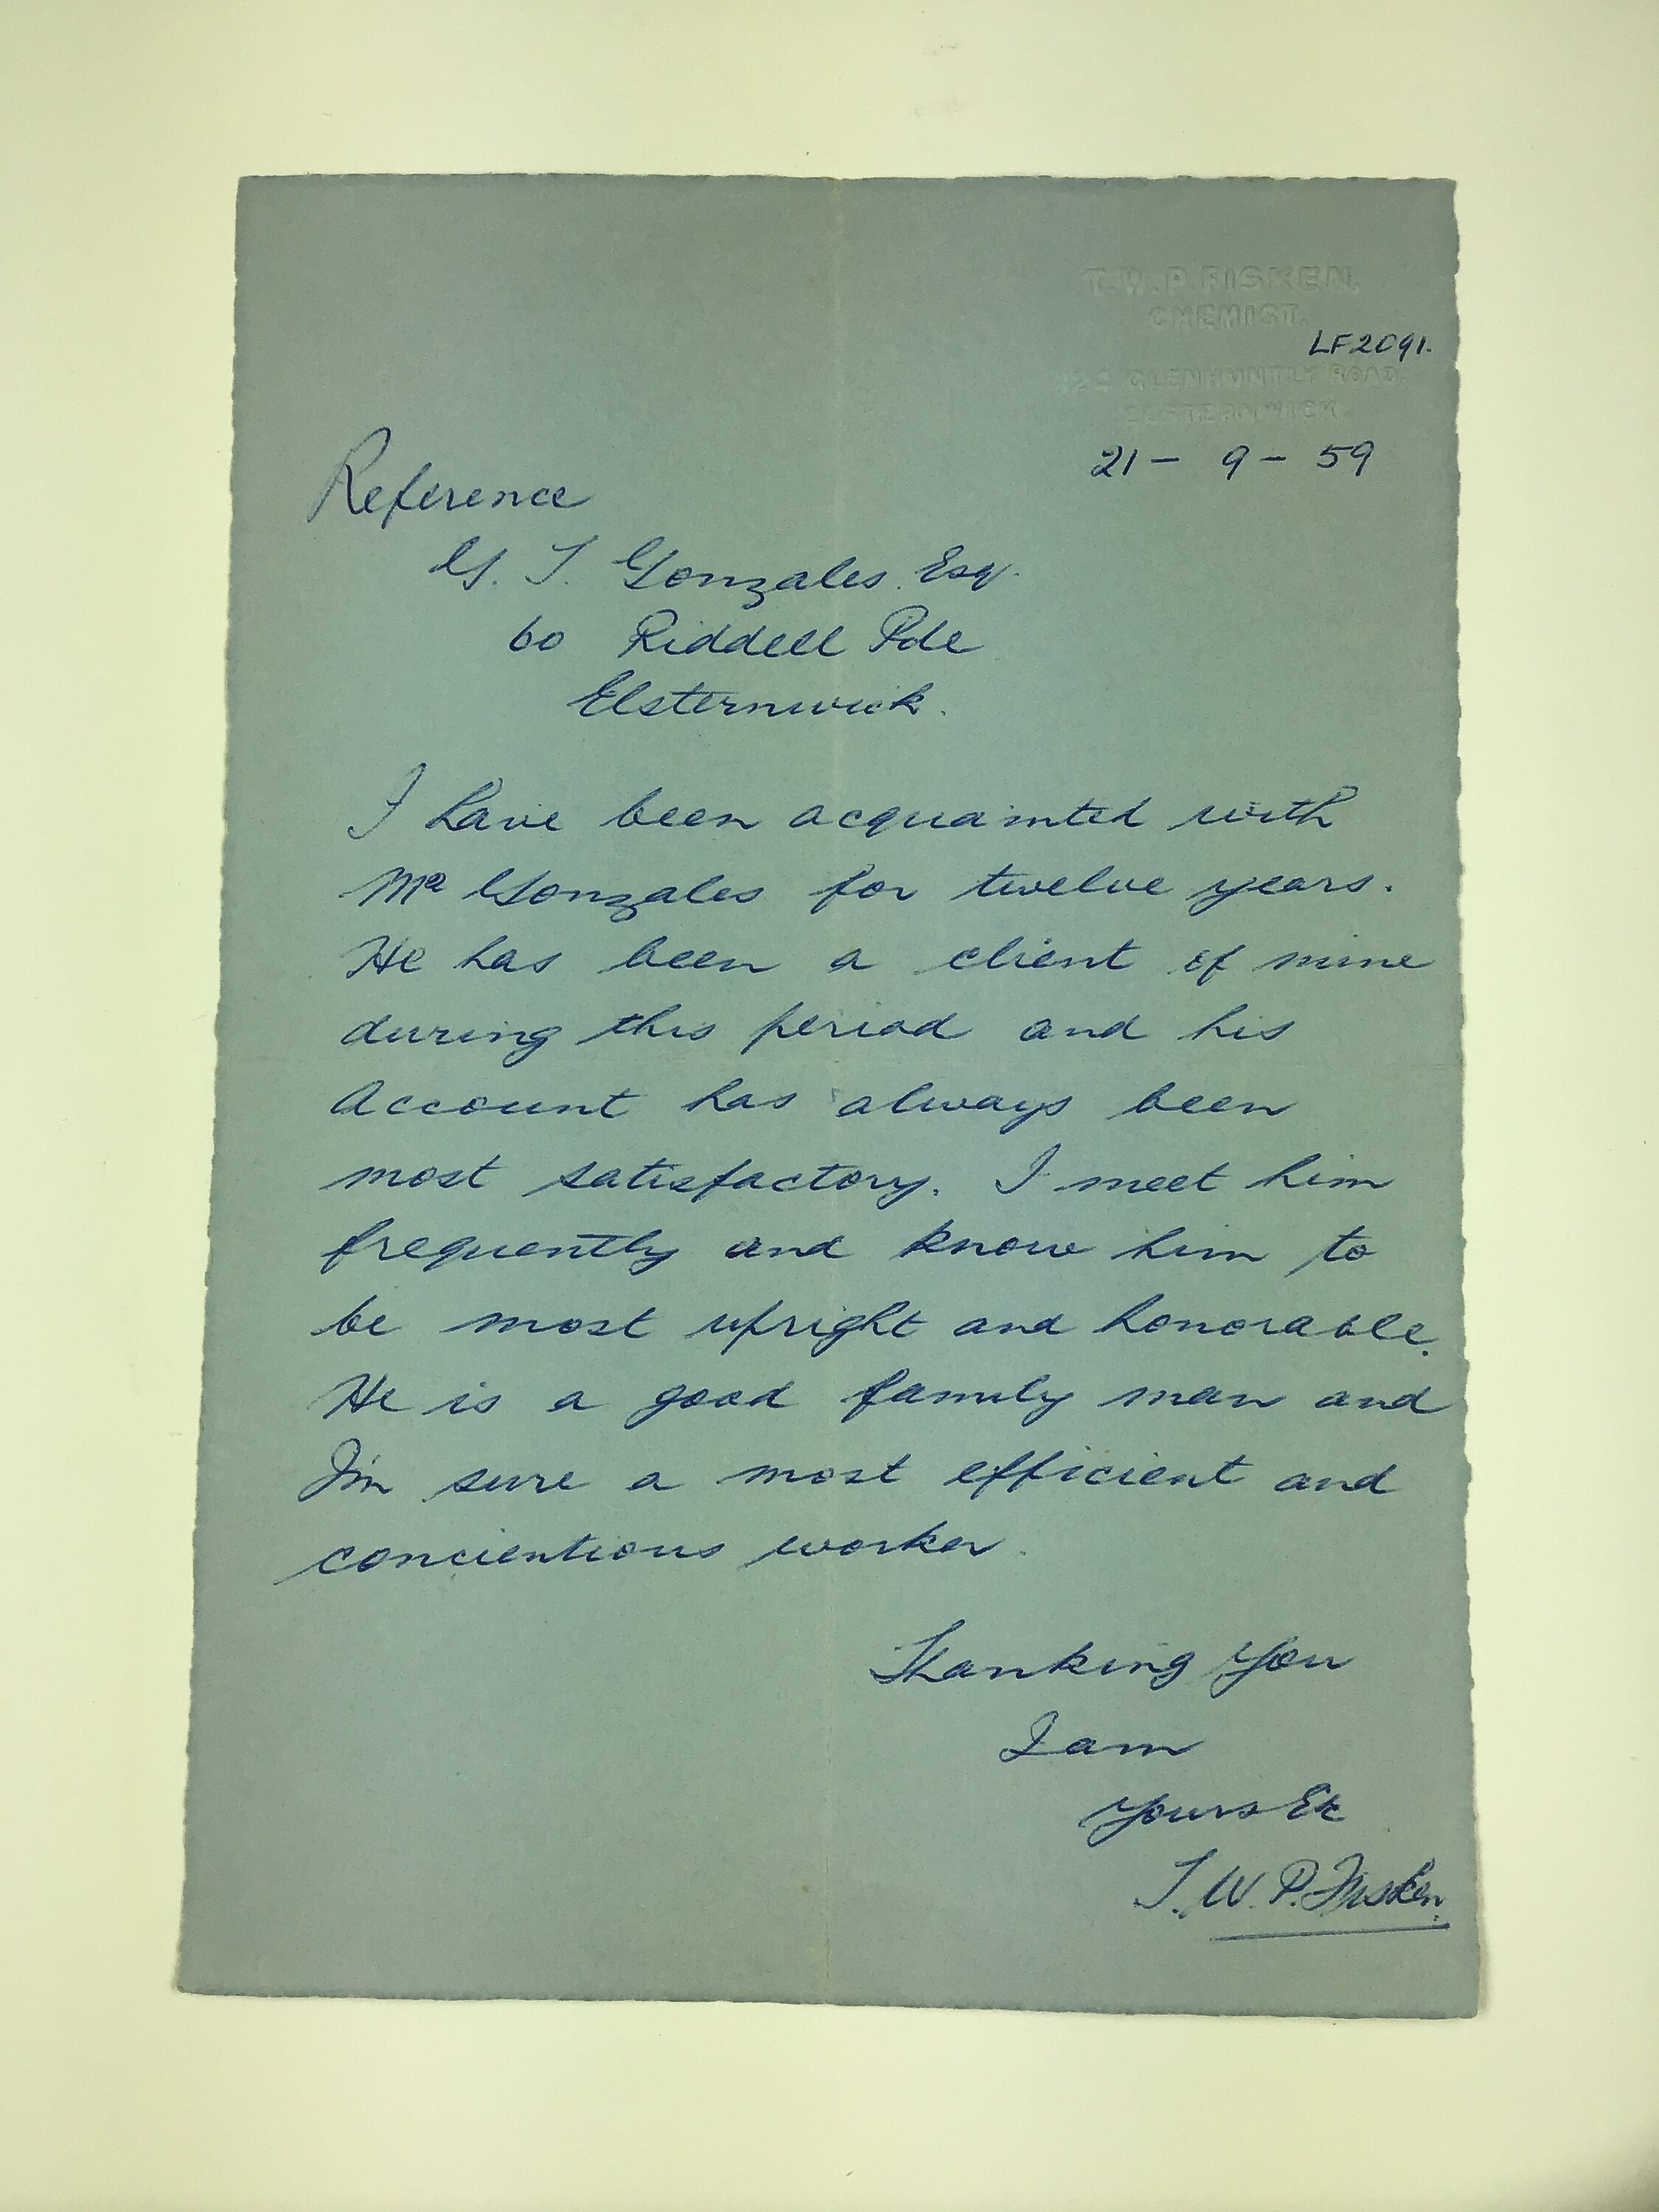 T.W.P. FISKEN,
CHEMIST.
LF2091.
GLENHUNTLY ROAD,
ELSTERNWICK.
21 - 9 - 59
Reference
G. T. Gonzales Esq.
60 Riddell Pde
Elsternwick.
I have been acquainted with
Mr Gonzales for twelve years.
He has been a client of mine
during this period and his
Account has always been
most satisfactory. I meet him
frequently and know him to
be most upright and honorable.
He is a good family man and
I'm sure a most efficient and
concientious worker.
Thanking You
I am
Yours Etc
T. W. P. Fisken.